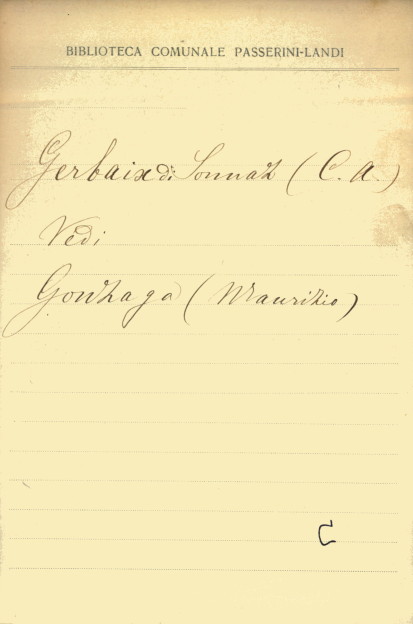 BIBLIOTECA COMUNALE PASSERINI-LANDI
Gerbaix di Sonnaz (C. A.)
Vedi
Gonzaga (Maurizio)
C